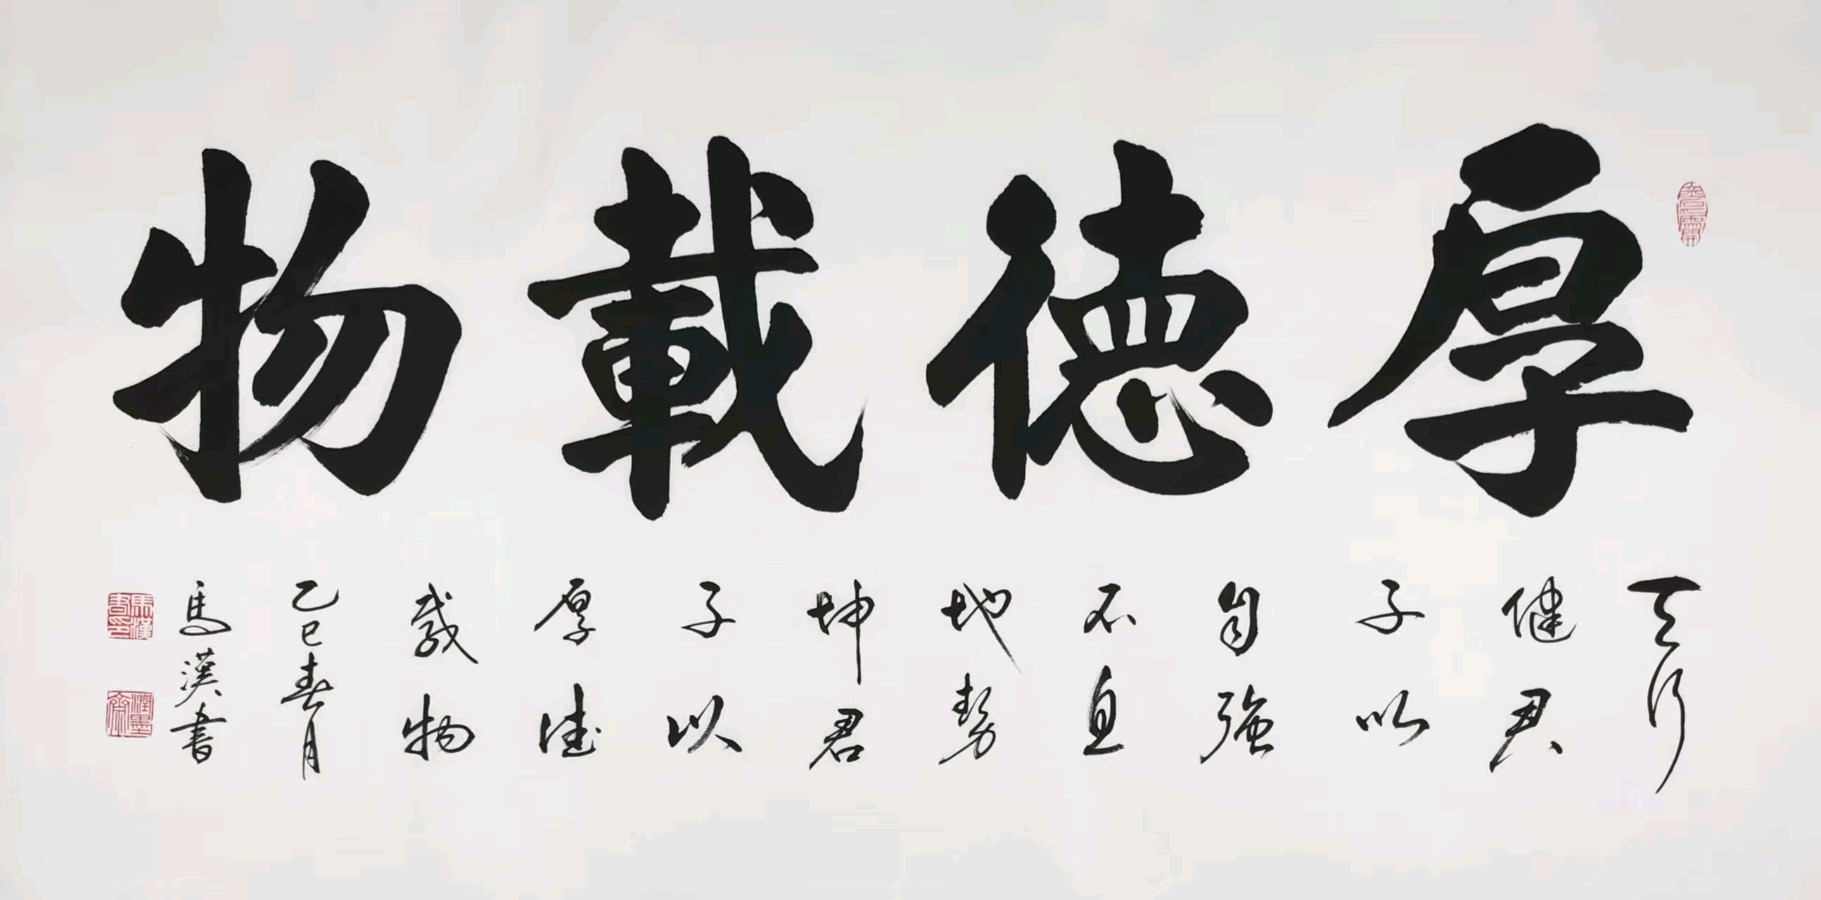 厚德載物
天行
健君
子以
自強
不息
地勢
坤君
子以
厚德
載物
乙巳春月
馬漢書